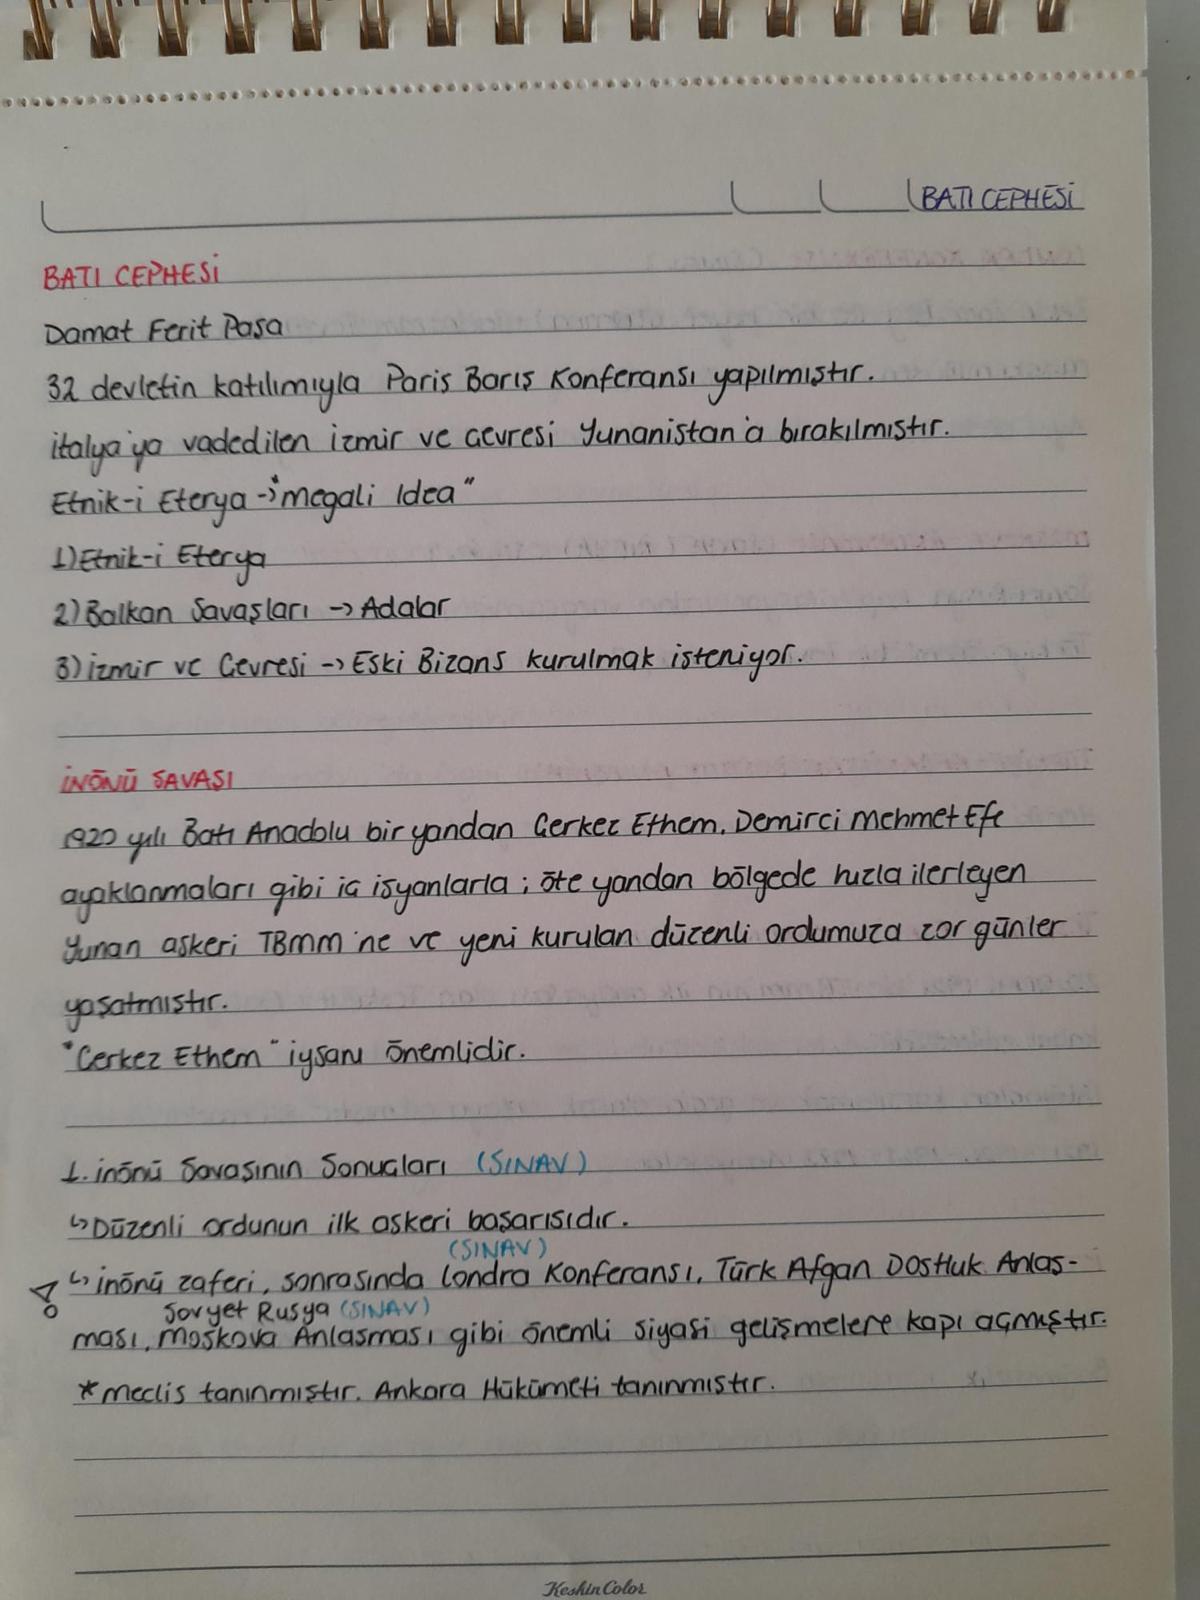 BATI CEPHESİ
BATI CEPHESİ
Damat Ferit Paşa
32 devletin katılımıyla Paris Barış Konferansı yapılmıştır.
italya'ya vadedilen izmir ve çevresi Yunanistan'a bırakılmıştır.
Etnik-i Eterya → "megali Idea"
1) Etnik-i Eterya
2) Balkan Savaşları → Adalar
3) izmir ve Çevresi → Eski Bizans kurulmak isteniyor.
İNÖNÜ SAVAŞI
1920 yılı Batı Anadolu bir yandan Çerkez Ethem, Demirci Mehmet Efe
ayaklanmaları gibi iç isyanlarla; öte yandan bölgede hızla ilerleyen
Yunan askeri TBMM'ne ve yeni kurulan düzenli ordumuza zor günler
yaşatmıştır.
"Çerkez Ethem" iysanı önemlidir.
1. inönü Savaşının Sonuçları (SINAV)
↳ Düzenli ordunun ilk askeri başarısıdır.
(SINAV)
↳ inönü zaferi, sonrasında Londra Konferansı, Türk Afgan Dostluk Anlaş-
Sovyet Rusya (SINAV)
ması, Moskova Anlaşması gibi önemli siyasi gelişmelere kapı açmıştır.
* Meclis tanınmıştır. Ankara Hükümeti tanınmıştır.
KeskinColor